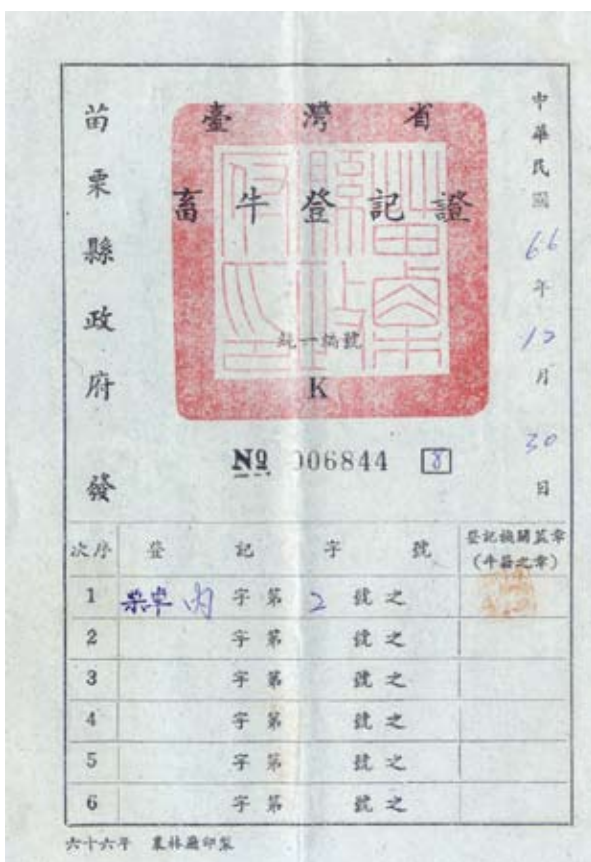 中華民國66年12月30日
臺灣省
畜牛登記證
苗栗縣政府 發
統一編號
K
№ 006844 8
次序 登記字號 登記機關蓋章
(牛籍之章)
1 內 字第 2 號之
2 字第 號之
3 字第 號之
4 字第 號之
5 字第 號之
6 字第 號之
六十六年 農林廳印製